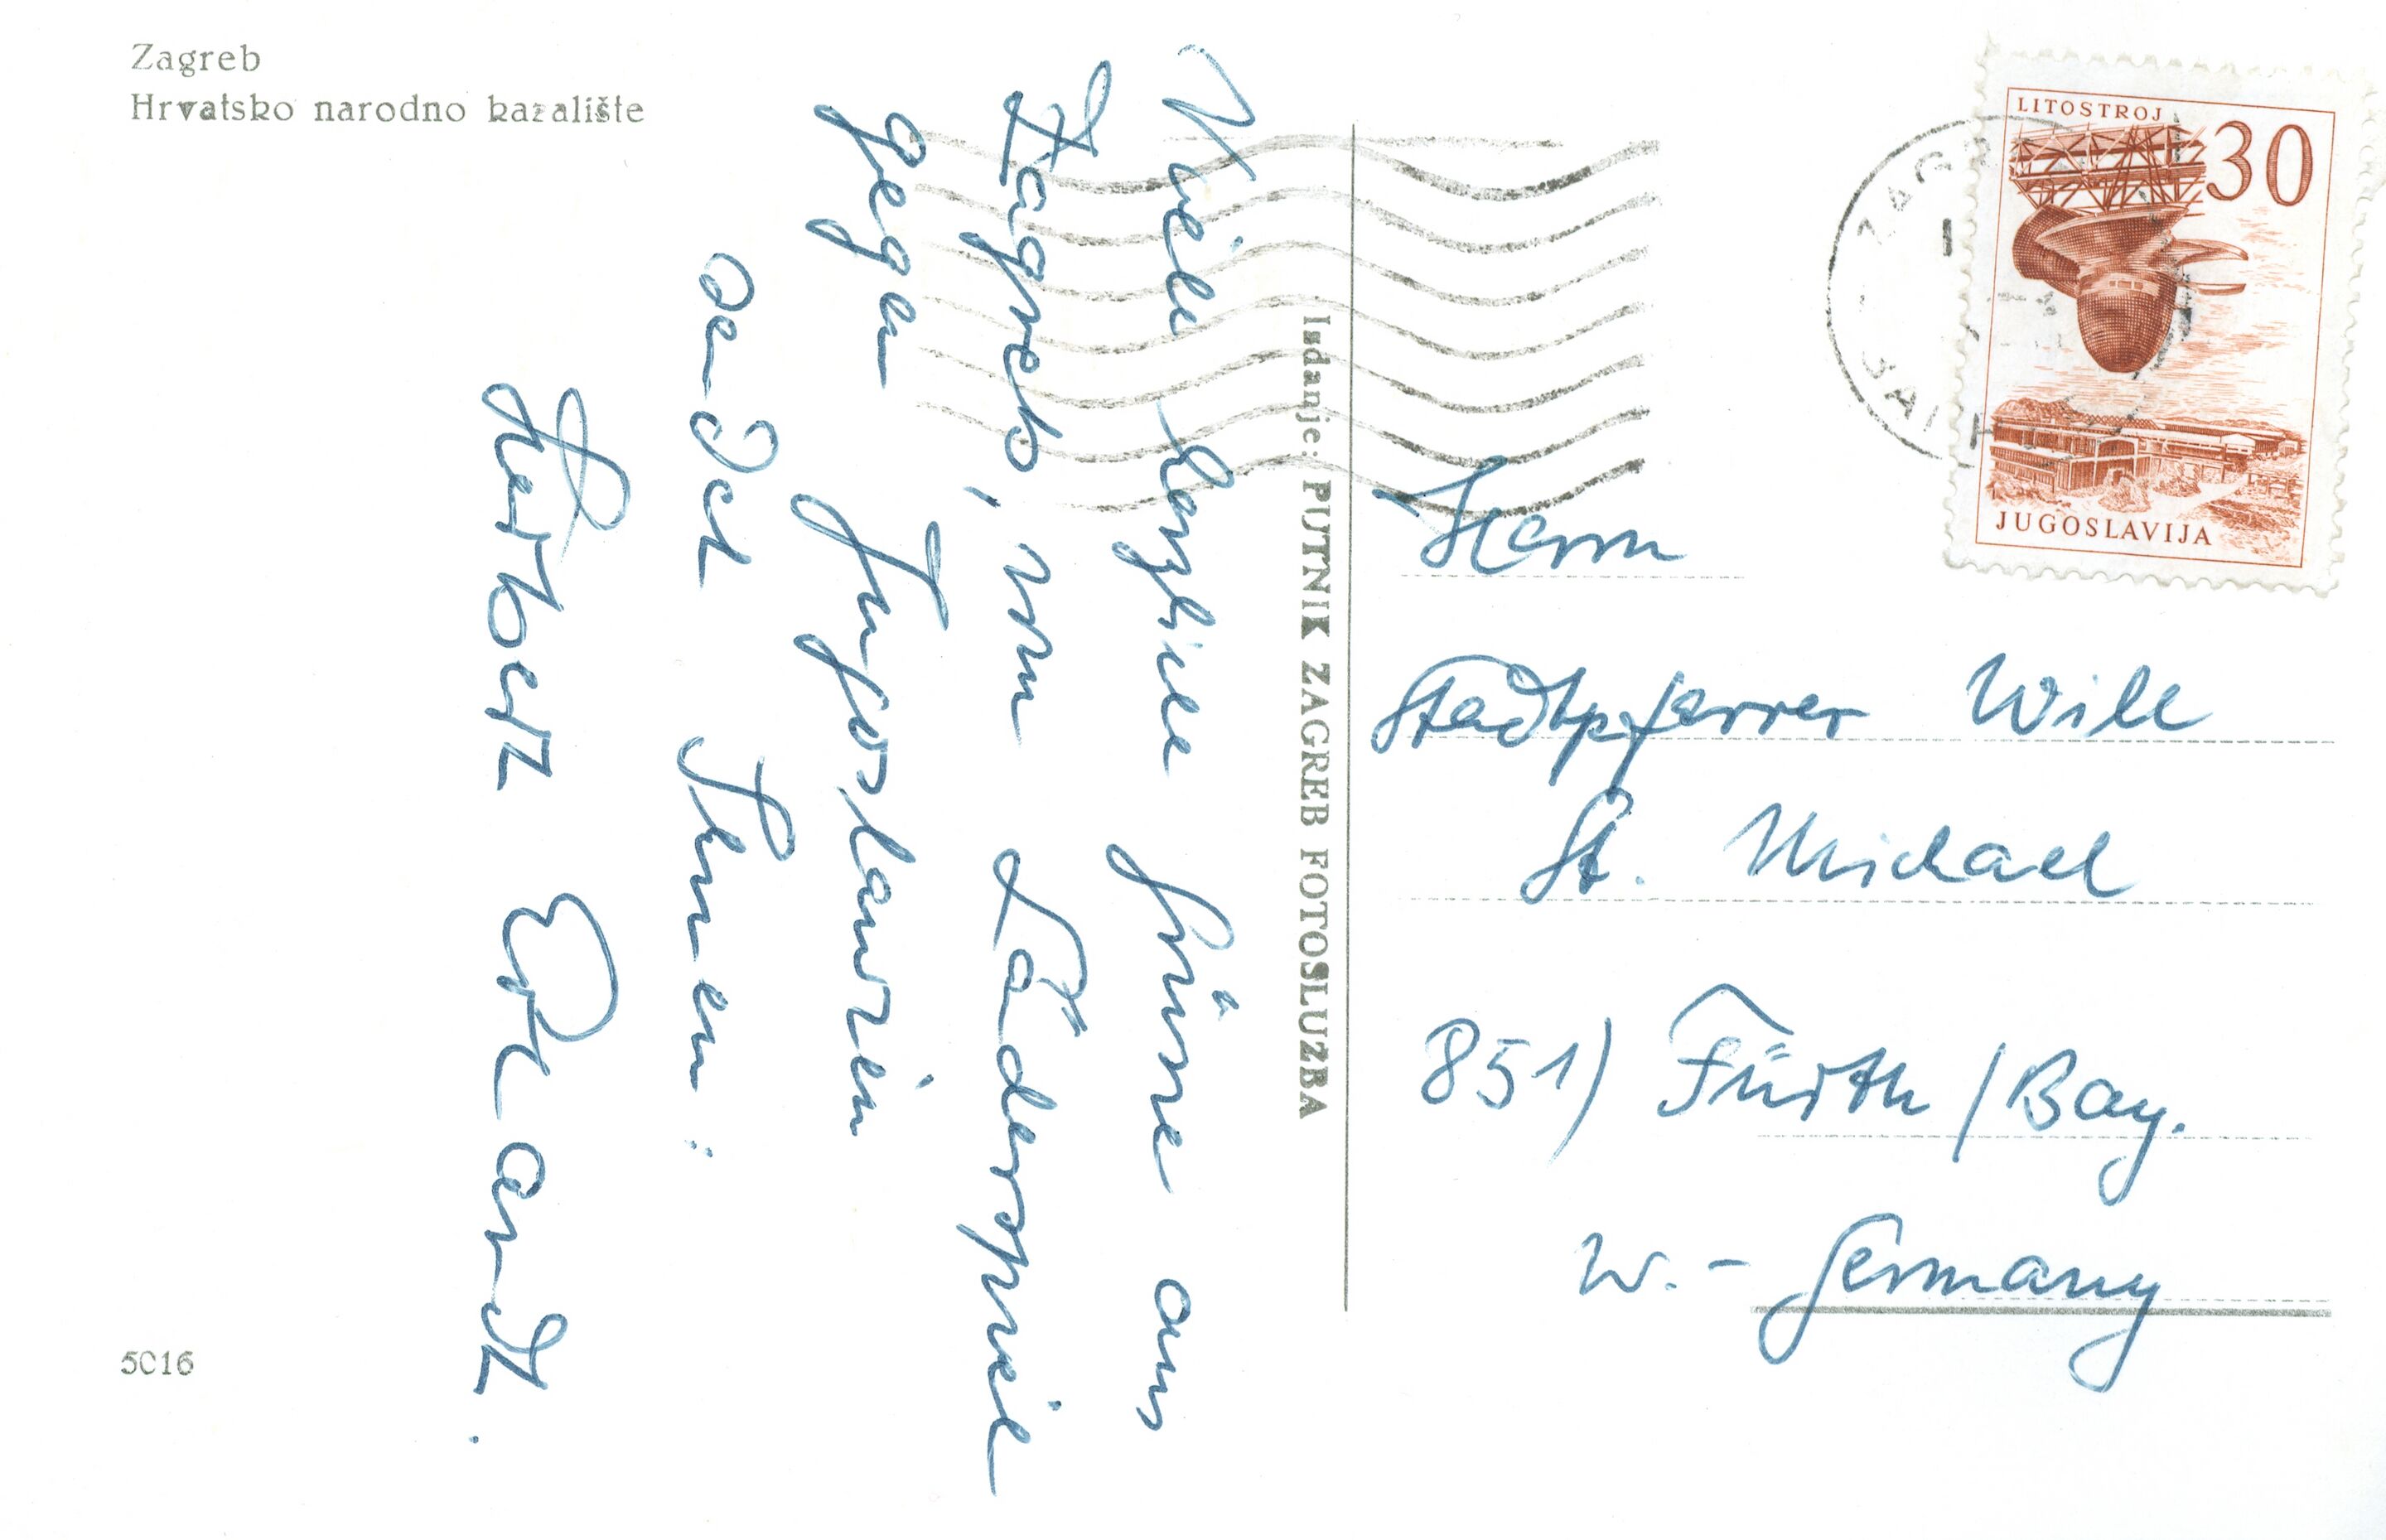 Zagreb
Hrvatsko narodno kazalište
Viele herzliche Grüsse aus
Zagreb, vom Länderspiel
gegen Jugoslawien
sendet Ihnen:
Herbert Erhardt.
5016
Izdanje: PUTNIK ZAGREB FOTOSLUZBA
LITOSTROJ
30
JUGOSLAVIJA
Herrn
Stadtpfarrer Will
St. Michael
851) Fürth/Bay.
W.- Germany